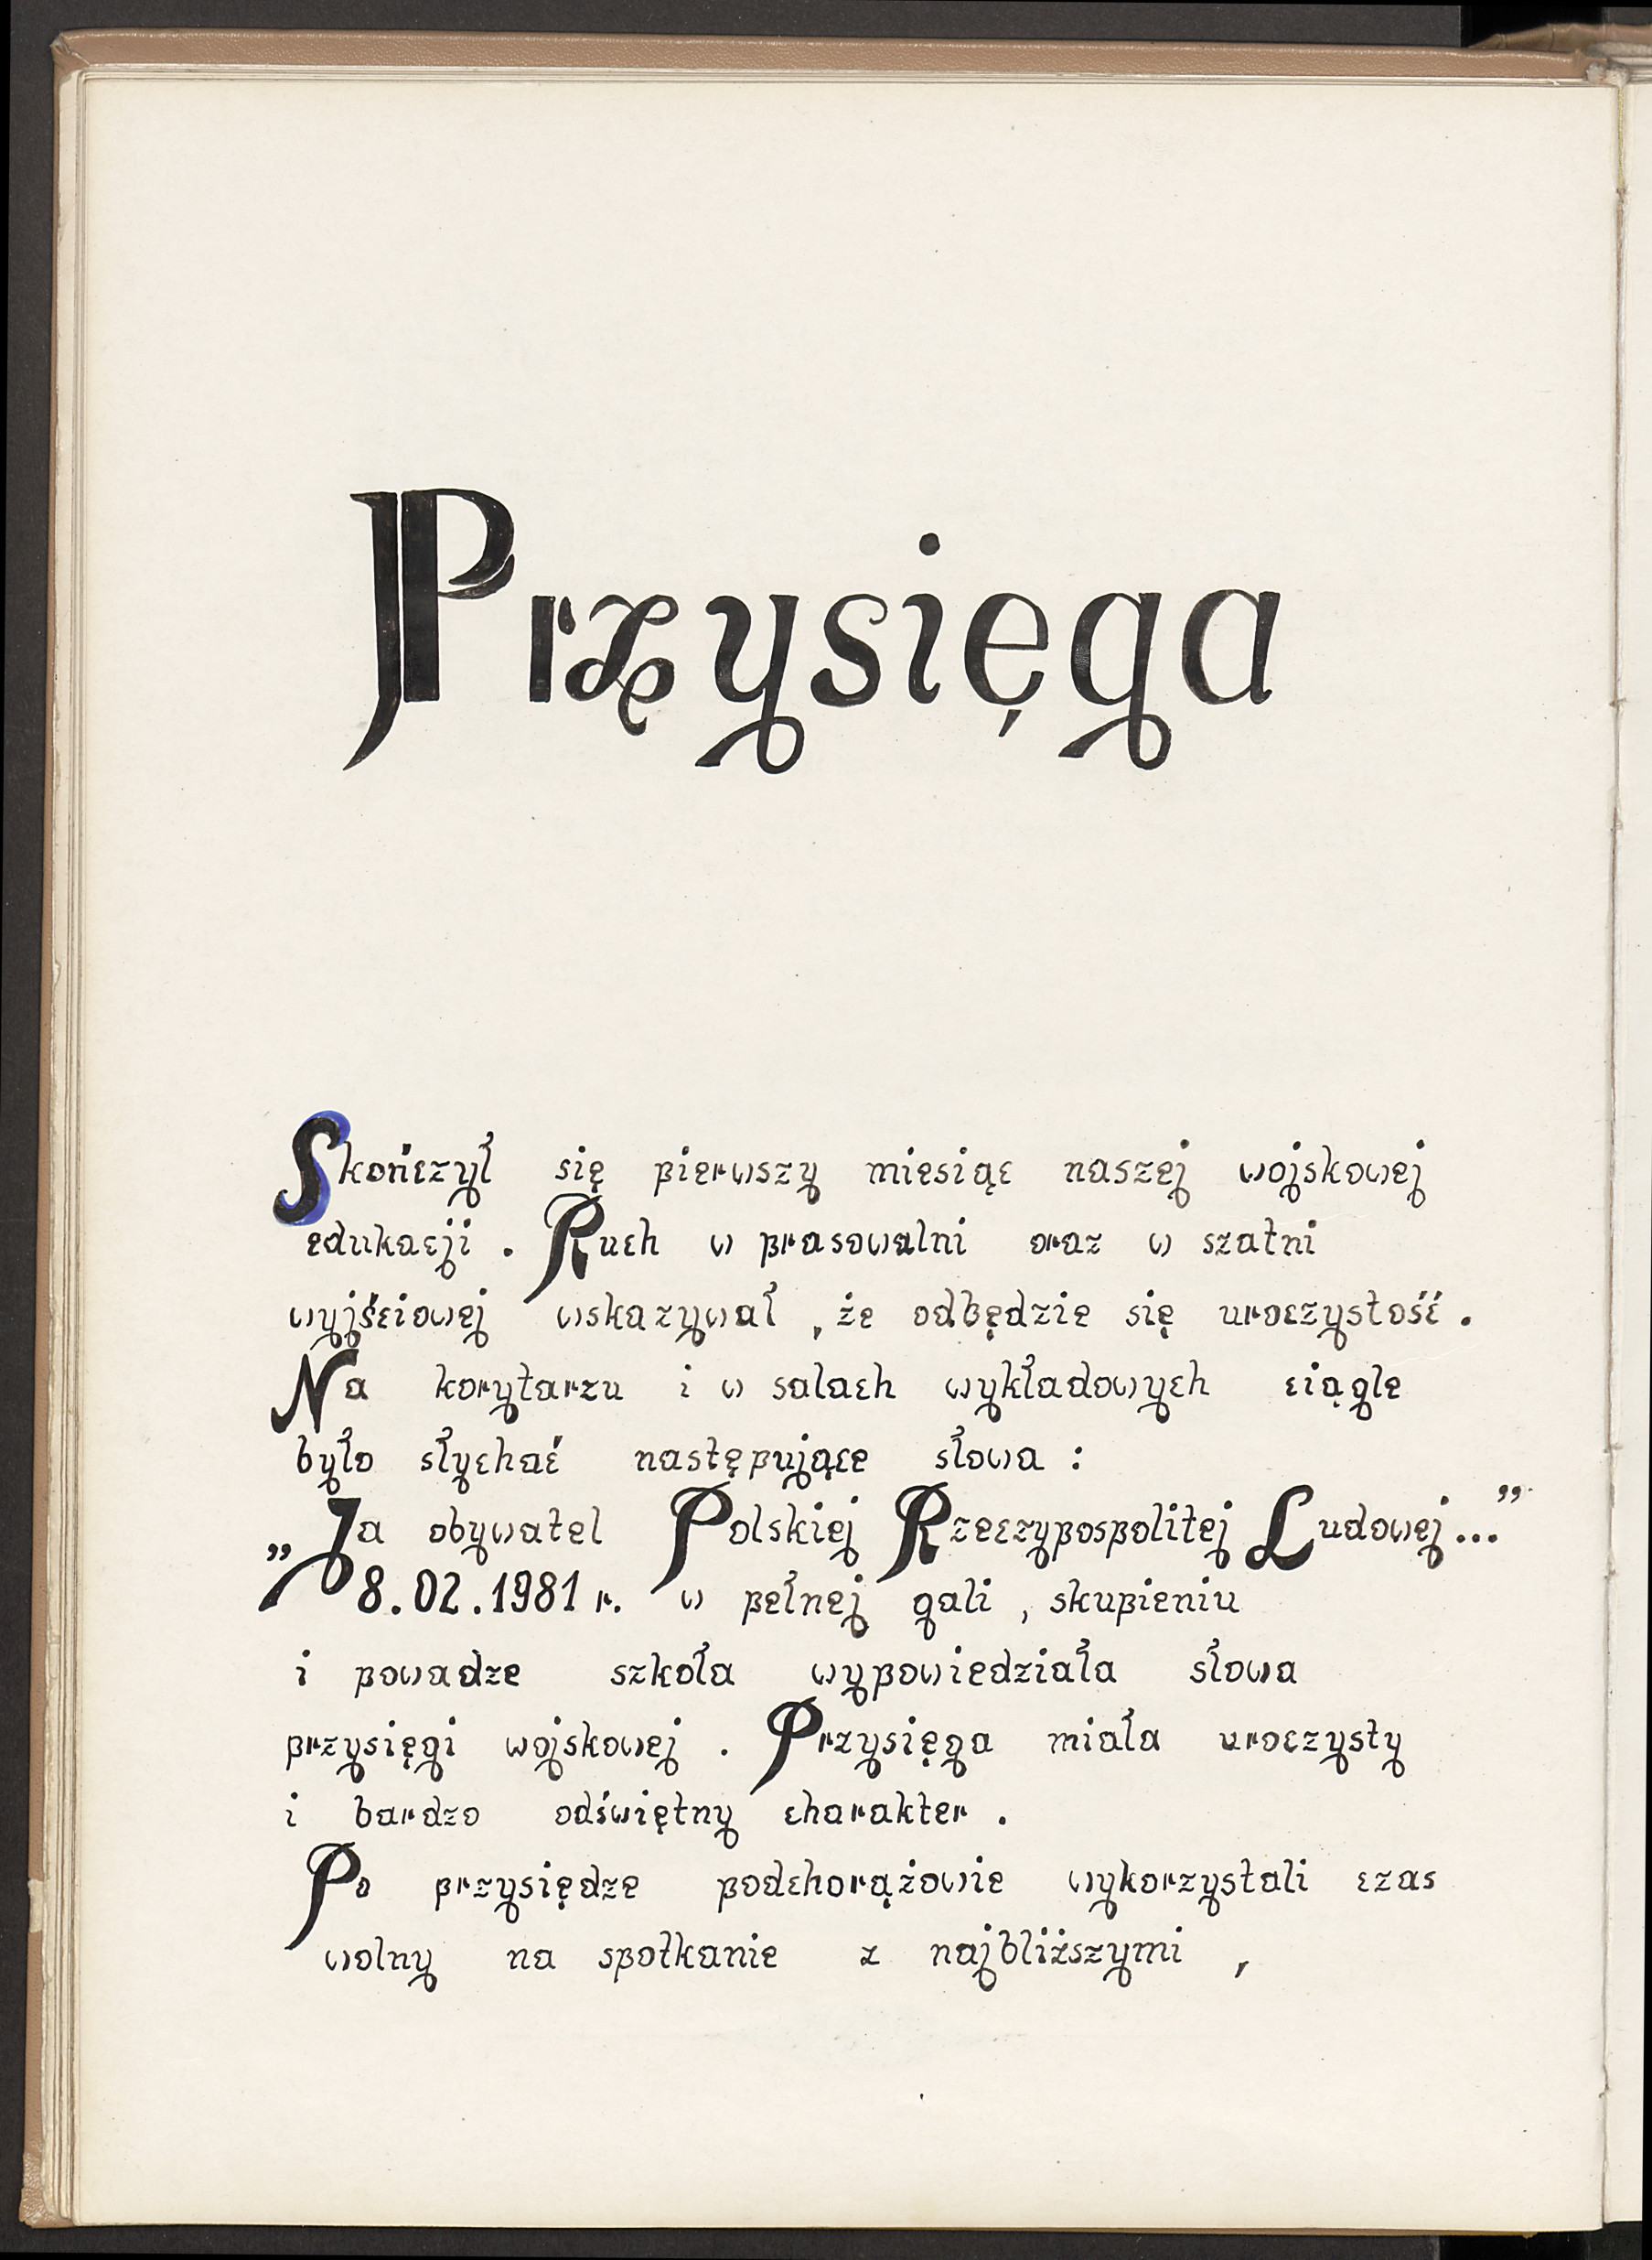 Przysięga
Skończył się pierwszy miesiąc naszej wojskowej
edukacji. Ruch w prasowalni oraz w szatni
wyjściowej wskazywał, że odbędzie się uroczystość.
Na korytarzu i w salach wykładowych ciągle
było słychać następujące słowa:
„Ja obywatel Polskiej Rzeczypospolitej Ludowej..."
8.02.1981 r. w pełnej gali, skupieniu
i powadze szkoła wypowiedziała słowa
przysięgi wojskowej. Przysięga miała uroczysty
i bardzo odświętny charakter.
Po przysiędze podchorążowie wykorzystali czas
wolny na spotkanie z najbliższymi,